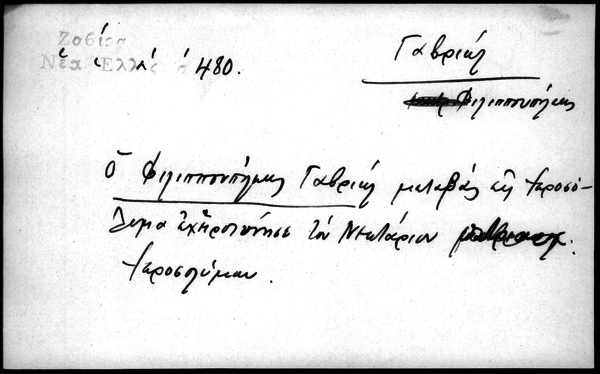 Ζαβίρα
Νέα Ἑλλὰς
480.
Γαβριήλ
Φιλιππουπόλεως
Ὁ Φιλιππουπόλεως Γαβριήλ μεταβὰς εἰς Ἱεροσό-
λυμα ἐχειροτόνησε τὸν Νεκτάριον πατριαρχ.
Ἱεροσολύμων.